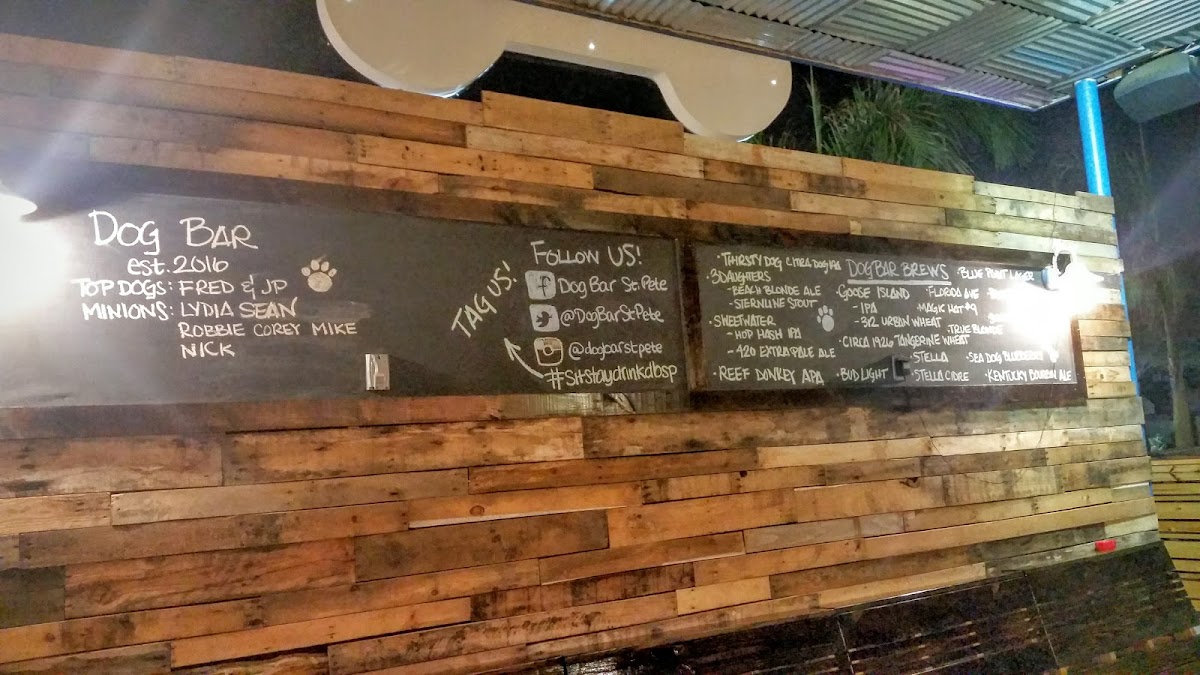 DOG BAR
est. 2016
TOP DOGS: FRED & JP
MINIONS: LYDIA SEAN
ROBBIE COREY MIKE
NICK
TAG US!
FOLLOW US!
Dog Bar St. Pete
@DogBarStPete
@dogbarstpete
#Sitstaydrinkdbsp
DOGBAR BREWS
• THIRSTY DOG CITRA DOG IPA
• 3 DAUGHTERS
- BEACH BLONDE ALE
- STERNLINE STOUT
• SWEETWATER
- HOP HASH IPA
- 420 EXTRA PALE ALE
• REEF DONKEY APA
• GOOSE ISLAND
- IPA
- 312 URBAN WHEAT
• CIRCA 1926 TANGERINE WHEAT
• BUD LIGHT
• BLUE POINT
• FLORIDA AVE
• MAGIC HAT #9
• TRUE BLONDE
• STELLA
• STELLA CIDRE
• SEA DOG BLUEBERRY
• KENTUCKY BOURBON ALE